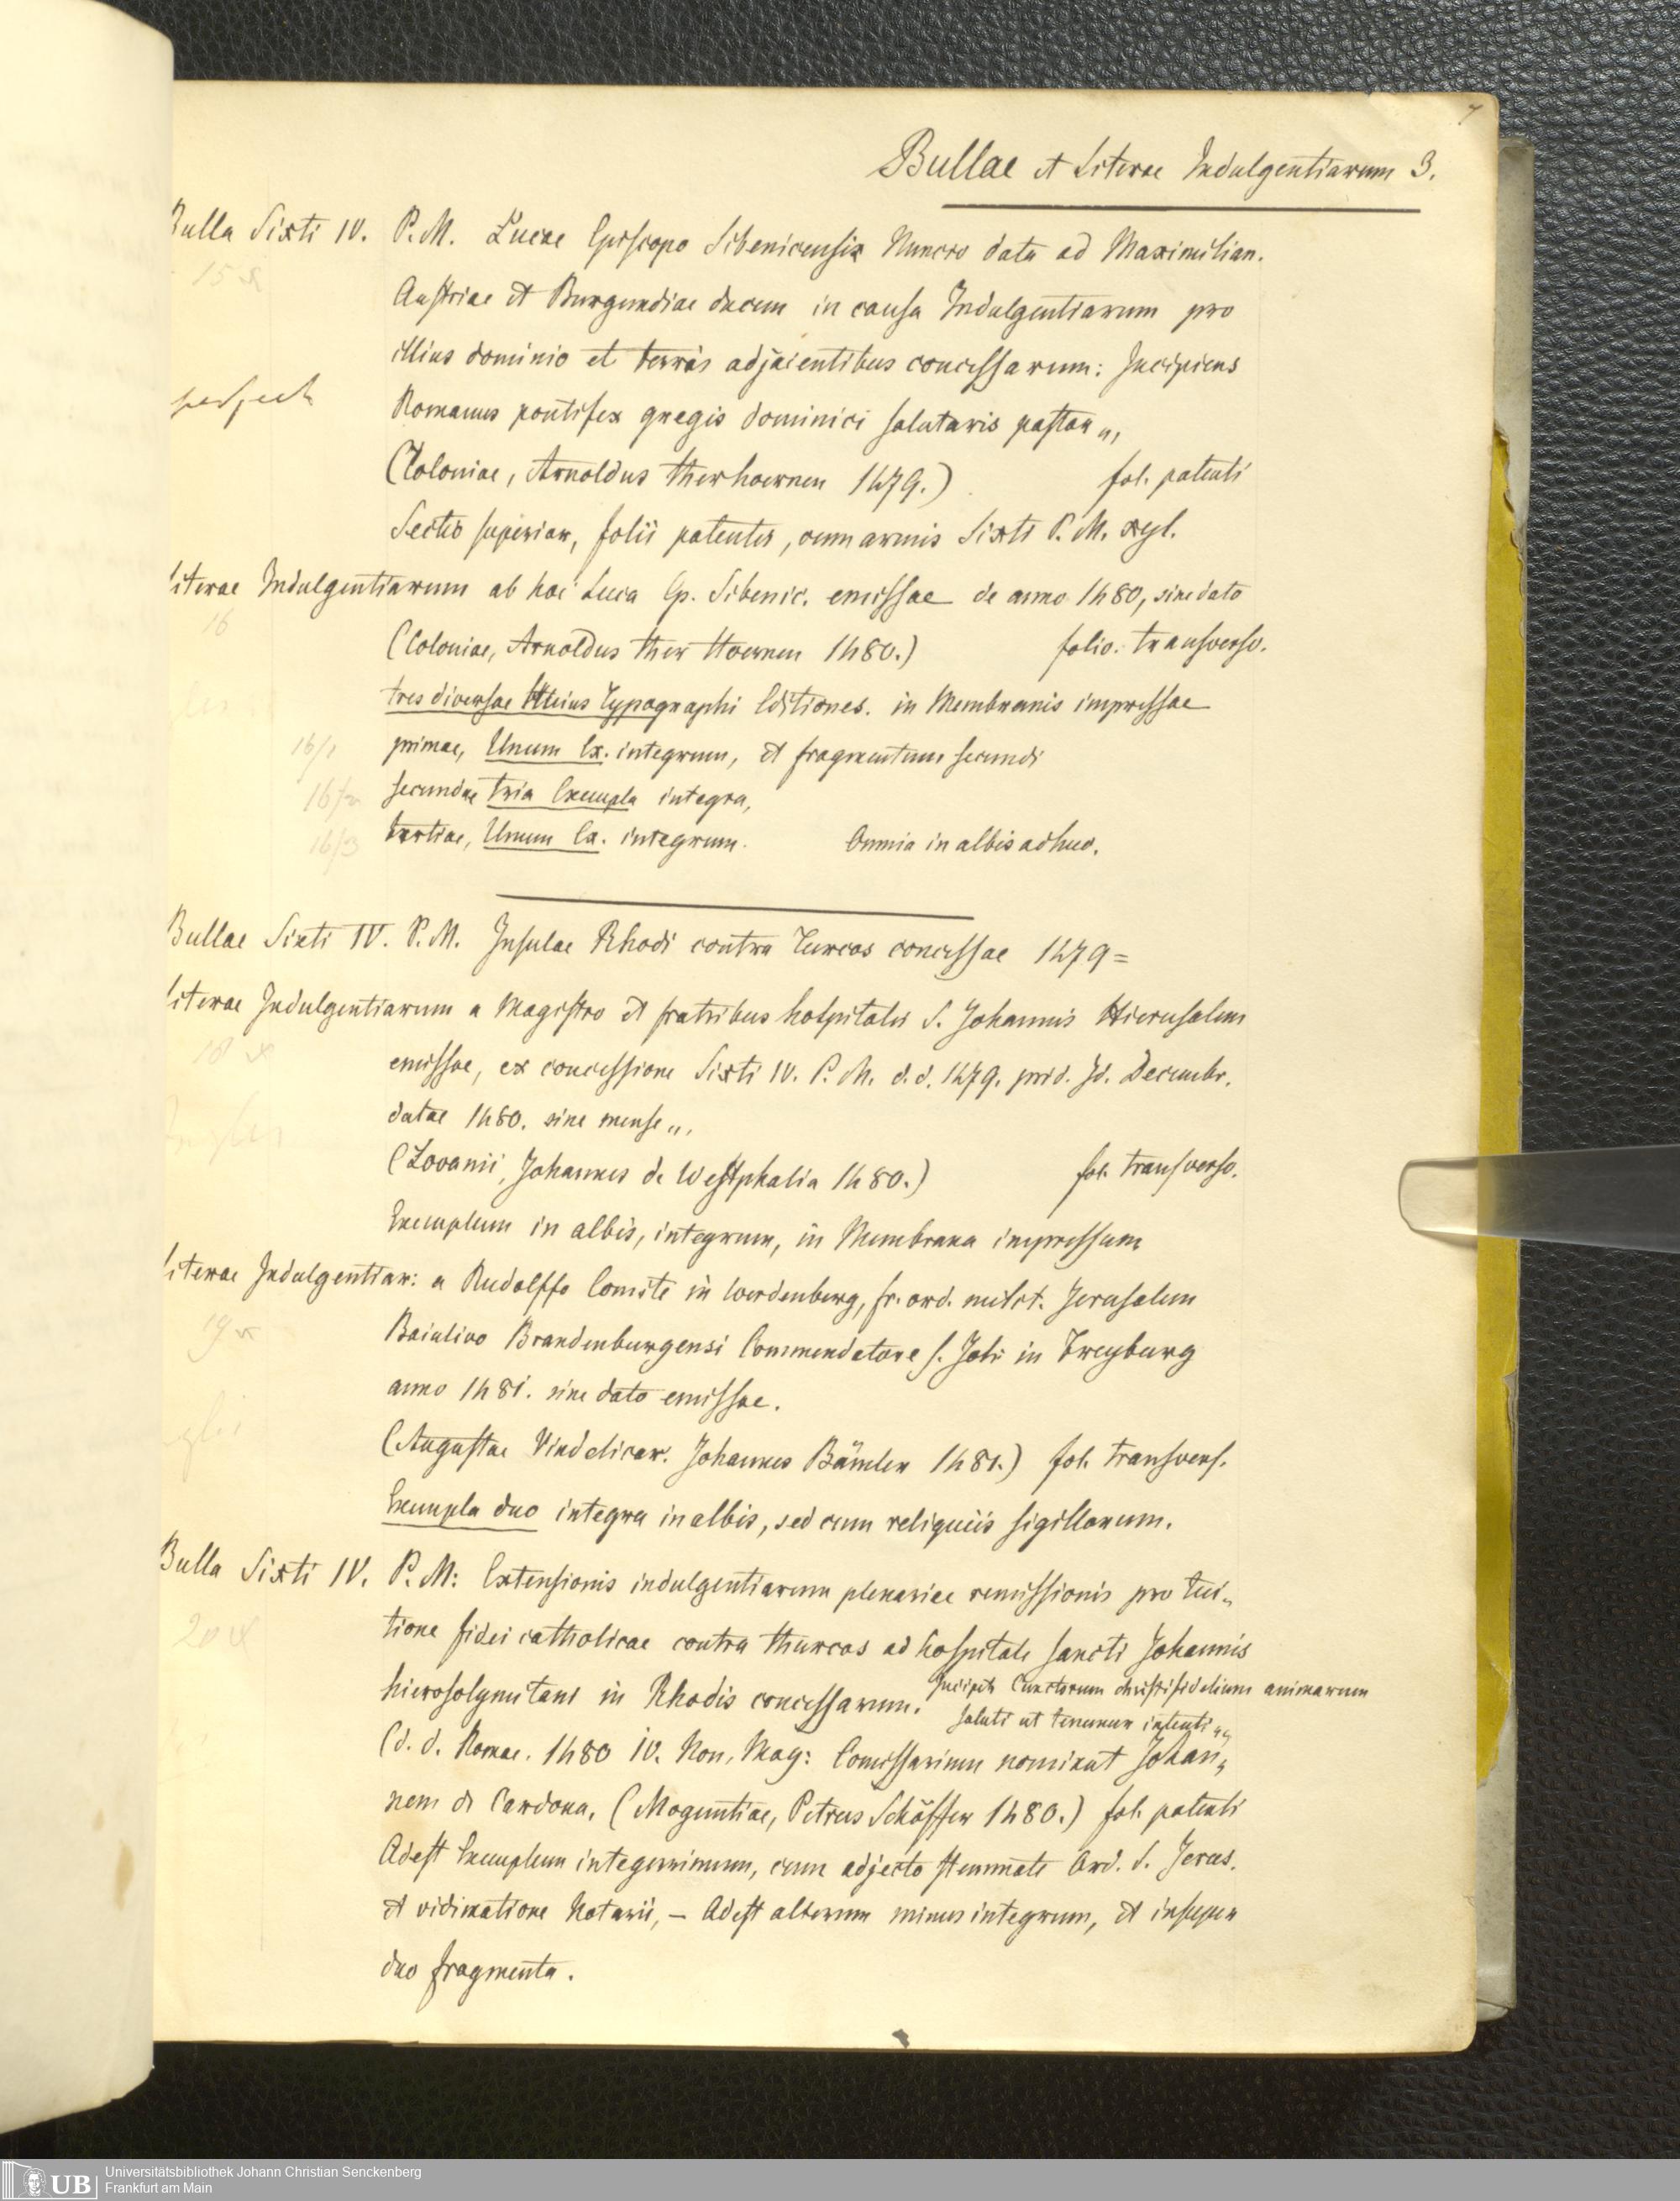 7
Bullae et Literae Indulgentiarum 3.
Bulla Sixti IV. P. M. Lucae Episcopo Sibenicensis Nuncio data ad Maximilian.
15 x
Austriae et Burgundiae ducem in causa Indulgentiarum pro
illius dominio et terris adjacentibus concessarum: Incipiens
Romanus pontifex gregis dominici salutaris pastor „,
(Coloniae, Arnoldus ther hoernen 1479.) fol. patenti
Sectio superior, folii patentis, cum armis Sixti P. M. xyl.
Literae Indulgentiarum ab hoc Luca Ep. Sibenic. emissae de anno 1480, sine dato
16
(Coloniae, Arnoldus ther Hoernen 1480.) folio. transverso.
tres diversae Hujus Typographi Editiones. in Membranis impressae
16/1 primae, Unum Ex. integrum, et fragmentum secundi
16/2 secundae tria Exempla integra,
16/3 tertiae, Unum Ex. integrum. Omnia in albis adhuc.
Bullae Sixti IV. P. M. Insulae Rhodi contra Turcos concessae 1479=
Literae Indulgentiarum a Magistro et fratribus hospitalis S. Johannis Hierusalem
18 x
emissae, ex concessione Sixti IV. P. M. d. d. 1479. prid. Id. Decembr.
datae 1480. sine mense „.
(Lovanii, Johannes de Westphalia 1480.) fol. transverso.
Exemplum in albis, integrum, in Membrana impressum
Literae Indulgentiar: a Rudolffo Comite in Werdenberg, fr. ord. milit. Jerusalem
19 x
Baiulivo Brandenburgensi Commendatore S. Joh in Freyburg
anno 1481. sine dato emissae.
(Augustae Vindelicor. Johannes Bämler 1481.) fol. transvers.
Exempla duo integra in albis, sed cum reliquiis sigillorum.
Bulla Sixti IV. P. M: Extensionis indulgentiarum plenariae remissionis pro tui„
20 x
tione fidei catholicae contra thurcos ad hospitale sancti Johannis
hierosolymitani in Rhodis concessarum. Incipit Cunctorum christifidelium animarum
saluti ut tenemur intenti „„
(d. d. Romae. 1480 IV. Non. May: Comissarium nominat Johan„
nem de Cardona, (Moguntiae, Petrus Schöffer 1480.) fol. patenti
Adest Exemplum integerrimum, cum adjecto stemmate Ord. S. Jerus.
et vidimatione Notarii, – Adest alterum minus integrum, et insuper
duo fragmenta.
UB
Universitätsbibliothek Johann Christian Senckenberg
Frankfurt am Main